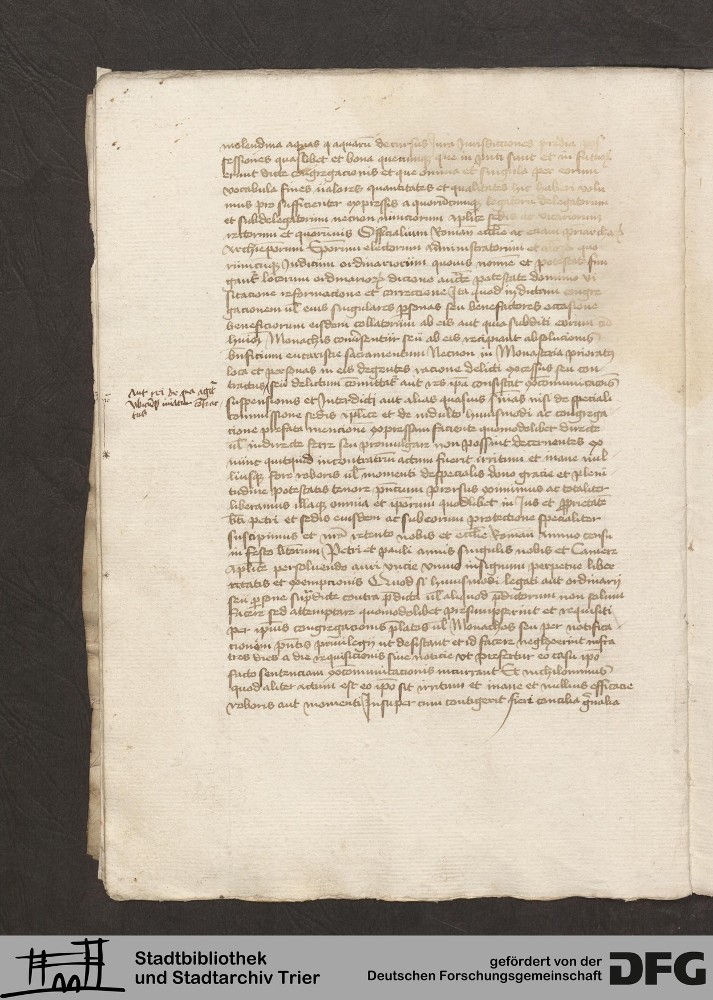 molendina aquas q aquarū decursus Jura Jurisdictiones predia pos
sessiones quaslibet et bona quecumq que in p̄nti sunt et in futur
erunt dicte congregacionis et que omnia et singula per eorum
vocabula fines valores quantitates et qualitates hic haberi volu
mus pro sufficienter expressis a quorūcumq legatorū delegatorum
et subdelegatorum necnon nunciorum aplice sedis ac vicariorum
rectorum et quorumuis Officialium Roman ecclie ac eciam priarcha
Archieporum Eporum electorum Administratorum et aliorū quo
rumcūq Judicum ordinariorum quouis nomine et potestate fun
gant locorum ordinariorū dicione aucte potestate dominio vi
sitacione reformacione et correctione Ita quod in dictam congre
gacionem ul eius singulares psonas seu benefactores occasione
beneficiorum eisdem collatorum ab eis aut quia subditi eorum
huiusmodi Monachis consentiūt seu ab eis recipiant absolucionis
bn̄ficium eucaristie sacramentum Necnon in Monasteria prioratus
loca et personas in eis degentes racione delicti excessus seu con
tractus seu delictum comittat aut res ipa consistat excomunicacionis
suspensionis et Interdicti aut alias quasuis s̄nias nisi de speciali
commissione sedis aplice et de indulto huiusmodi ac congrega
cione prefata mencione expressam faciente quomodolibet directe
ul indirecte ferre seu promulgare non possint decernentes ex
nunc quitquid in contrarium actum fuerit irritum et inane nul
liusq fore roboris ul momenti de specialis dono gracie et pleni
tudine potestatis tenore pn̄tium prorsus eximimus ac totaliter
liberamus illaq omnia et ipsorum quodlibet in Jus et p̄prietatem
bt̄i petri et sedis eiusdem ac sub eorum protectione specialiter
suscipimus et nr̄a retento nobis et ecclie Romañ annuo censu
in festo btorum Petri et pauli annis singulis nobis et Camere
aplice persoluendo auri vncie vnius in signum perpetue liber
tatis et exempcionis Quod si huiusmodi legati aut ordinarij
seu p̄sone sup̄dicte contra p̄dicta ul aliquod p̄dictorum non solum
facere sed attemptare quomodolibet presumpserint et requisiti
per ipsius congregacionis platos ul Monachos seu per notifica
cionem pn̄tis preuilegij ut desistant et id facere neghexerint infra
tres dies a die requisicionis siue noticie vt prefertur eo casu ipo
facto sentenciam excomunicacionis incurrant Et nichilominus
quod aliter actum est eo ipo sit irritum et inane et nullius efficacie
roboris aut momenti Insuper cum contigerit fieri concilia gn̄alia
Aut rei de qua agit
vbicūq initur contrac
tus
Stadtbibliothek
und Stadtarchiv Trier
gefördert von der
Deutschen Forschungsgemeinschaft
DFG